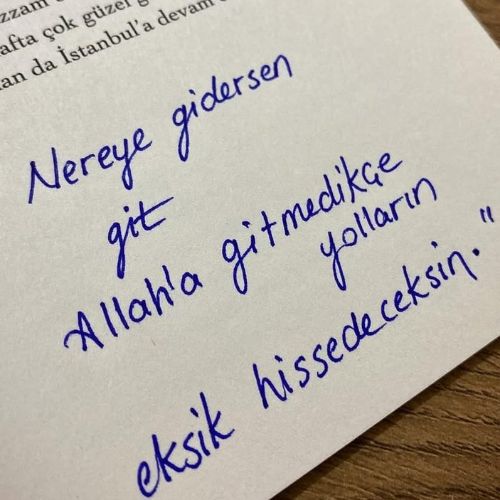 zzam
afta çok güzel
an da İstanbul'a devam
Nereye gidersen
git
Allah'a gitmedikçe
yolların
eksik hissedeceksin."